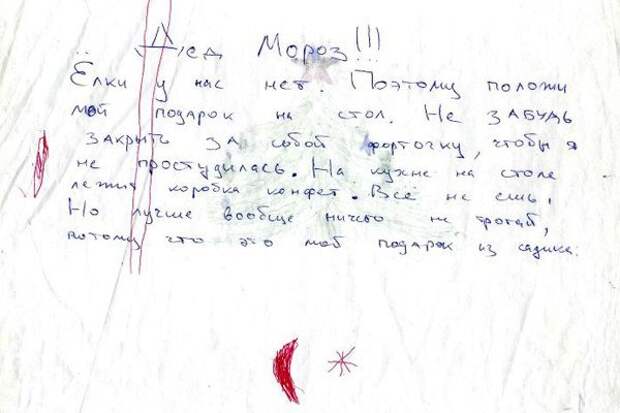 Дед Мороз!!!
Ёлки у нас нет. Поэтому положи
мой подарок на стол. Не ЗАБУДЬ
ЗАКРЫТЬ ЗА собой форточку, чтобы я
не простудилась. На кухне на столе
лежит коробка конфет. Все не ешь.
Но лучше вообще ничего не трогай,
потому что это мой подарок из садика.